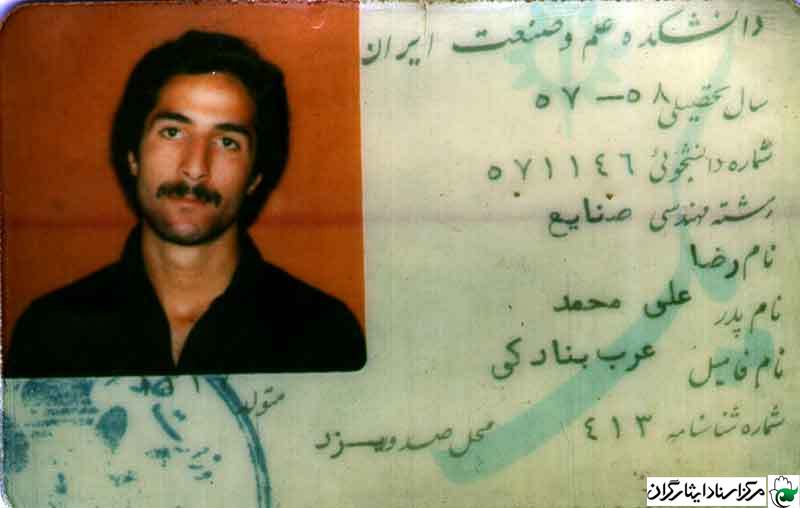 دانشکده علم و صنعت ایران
سال تحصیلی ۵۸–۵۷
شماره دانشجوئی ۵۷۱۱٤٦
رشته مهندسی صنایع
نام رضا
نام پدر علی محمد
نام فامیل عرب بنادکی
شماره شناسنامه ٤۱۳ محل صدور یزد
متولد
مرکز اسناد ایثارگران